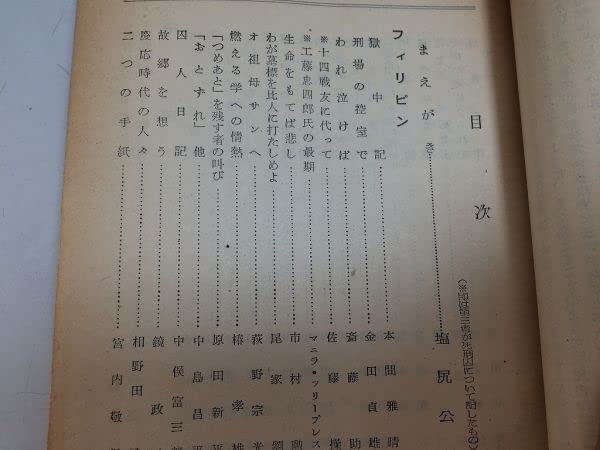 目次
(※印は第三者が死刑囚について記したもの)
まえがき……塩尻公
フィリピン
獄中記……本間雅晴
刑場の控室で……金田貞雄
われ泣けば……斎藤 助
※十四戦友に代って……佐藤 操
※工藤忠四郎氏の最期……マニラ・フリープレス
生命をもてば悲し……市村 勲
わが墓標を比人に打たしめよ……尾家
オ祖母サンへ……萩野宗光
燃える学への情熱……椿 孝雄
「つめあと」を残す者の叫び……原田新平
「おとずれ」他……中島昌平
囚人日記……中俣富三郎
故郷を想う……鏡 政
慶応時代の人々……相野田
二つの手紙……宮内敬